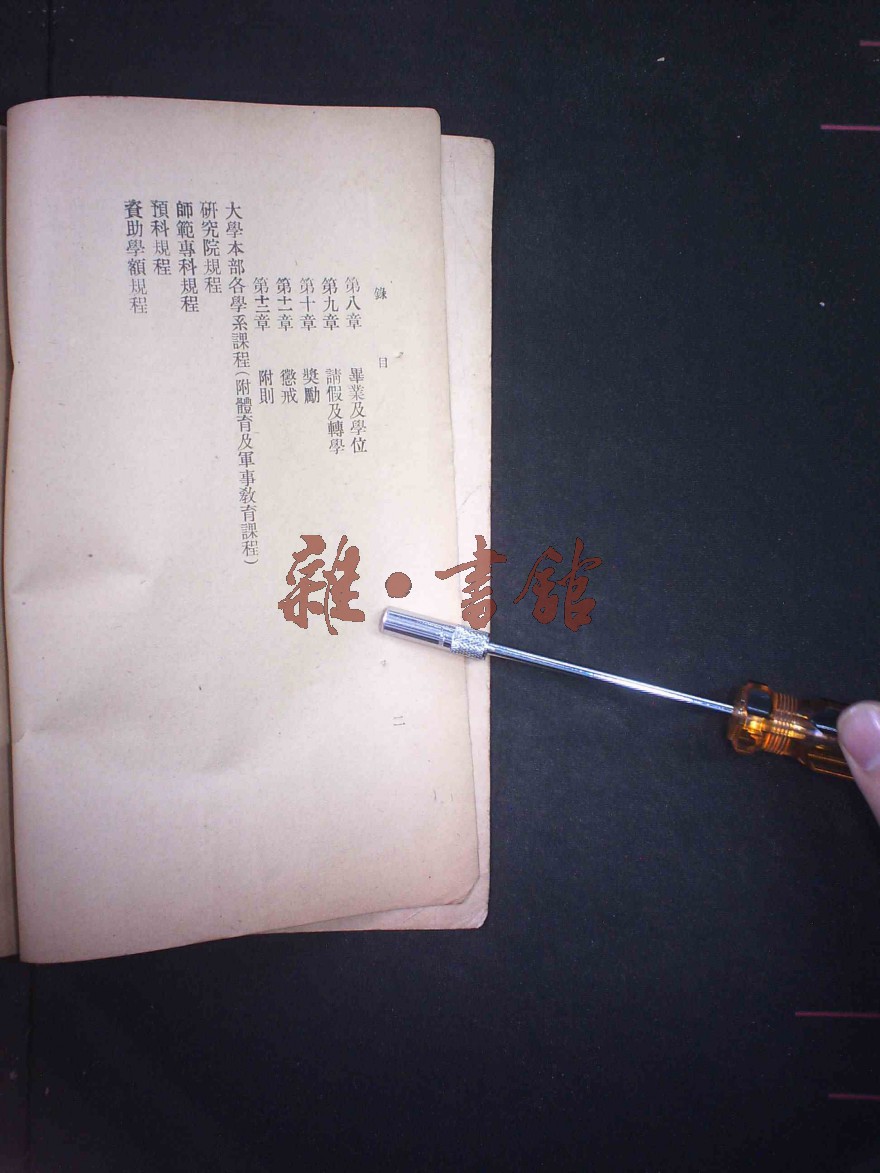 錄目
二
第八章　畢業及學位
第九章　請假及轉學
第十章　獎勵
第十一章　懲戒
第十二章　附則
大學本部各學系課程（附體育及軍事教育課程）
研究院規程
師範專科規程
預科規程
資助學額規程
雜·書館